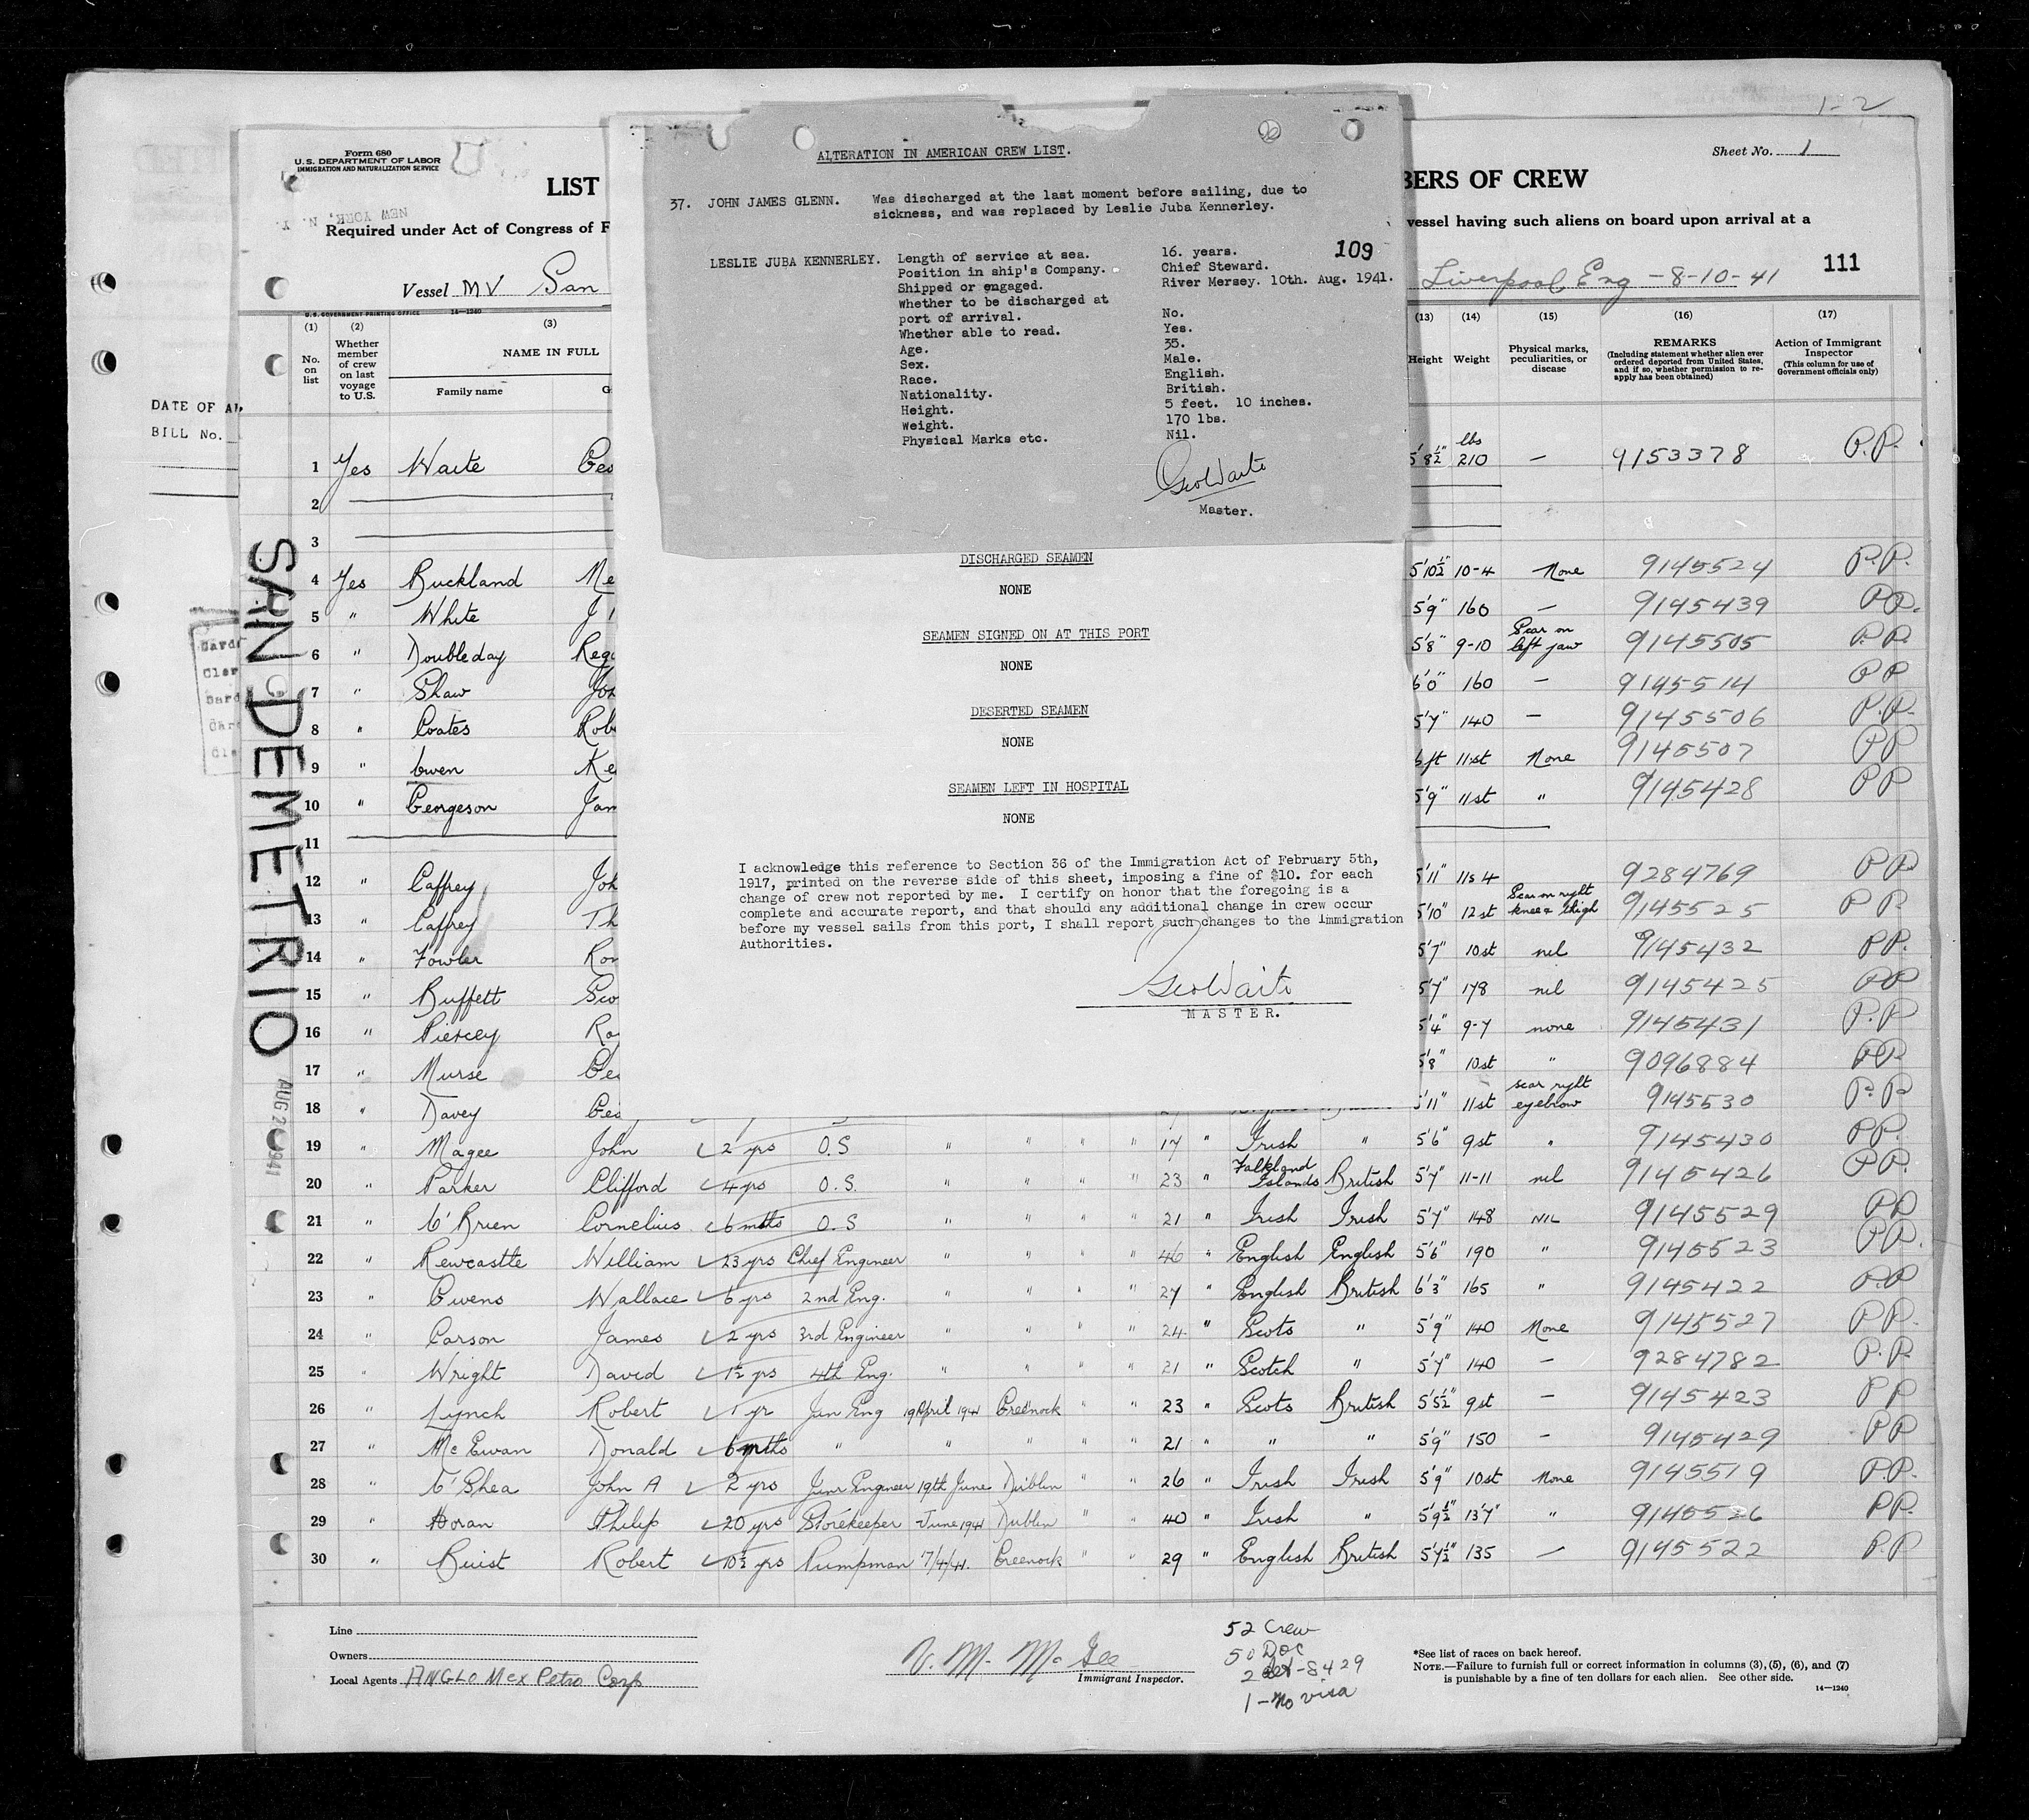 1-2
Form 680
U.S. DEPARTMENT OF LABOR
IMMIGRATION AND NATURALIZATION SERVICE
Sheet No. 1
LIST
BERS OF CREW
NEW YORK, N. Y.
Required under Act of Congress of F
vessel having such aliens on board upon arrival at a
111
Vessel MV San
Liverpool Eng - 8-10-41
ALTERATION IN AMERICAN CREW LIST.
37. JOHN JAMES GLENN. Was discharged at the last moment before sailing, due to
sickness, and was replaced by Leslie Juba Kennerley.
109
LESLIE JUBA KENNERLEY. Length of service at sea. 16. years.
Position in ship's Company. Chief Steward.
Shipped or engaged. River Mersey. 10th. Aug. 1941.
Whether to be discharged at
port of arrival. No.
Whether able to read. Yes.
Age. 35.
Sex. Male.
Race. English.
Nationality. British.
Height. 5 feet. 10 inches.
Weight. 170 lbs.
Physical Marks etc. Nil.
Geo Waite
Master.
DISCHARGED SEAMEN
NONE
SEAMEN SIGNED ON AT THIS PORT
NONE
DESERTED SEAMEN
NONE
SEAMEN LEFT IN HOSPITAL
NONE
I acknowledge this reference to Section 36 of the Immigration Act of February 5th,
1917, printed on the reverse side of this sheet, imposing a fine of $10. for each
change of crew not reported by me. I certify on honor that the foregoing is a
complete and accurate report, and that should any additional change in crew occur
before my vessel sails from this port, I shall report such changes to the Immigration
Authorities.
Geo Waite
MASTER.
U.S. GOVERNMENT PRINTING OFFICE 14—1240
(1) (2) (3) (13) (14) (15) (16) (17)
No. on list
Whether member of crew on last voyage to U.S.
NAME IN FULL
Family name G
Height
Weight
Physical marks, peculiarities, or disease
REMARKS
(Including statement whether alien ever ordered deported from United States, and if so, whether permission to re-apply has been obtained)
Action of Immigrant Inspector
(This column for use of Government officials only)
DATE OF AR
BILL No.
SAN DEMETRIO
1 Yes Waite Geo 5'8½" lbs 210 — 9153378 P.P.
2
3
4 Yes Buckland Me 5'10½" 10-4 None 9145524 P.P.
5 " White J 5'9" 160 — 9145439 P.P.
6 " Doubleday Reg 5'8" 9-10 Scar on left jaw 9145505 P.P.
7 " Shaw Jo 6'0" 160 — 9145514 PP
8 " Coates Rob 5'7" 140 — 9145506 P.P.
9 " Owen Ke 6ft 11st None 9145507 PP
10 " Georgeson Jam 5'9" 11st " 9145428 PP
11
12 " Caffrey Joh 5'11" 11s 4 9284769 PP
13 " Caffrey Th 5'10" 12st Scar on right knee & thigh 9145525 PP
14 " Fowler Ron 5'7" 10st nil 9145432 PP.
15 " Buffett Geo 5'7" 178 nil 9145425 PP
16 " Piercey Ro 5'4" 9-7 none 9145431 P.P
17 " Murse Ge 5'8" 10st " 9096884 PP
18 " Davey Geo 5'11" 11st scar right eyebrow 9145530 P.P
19 " Magee John 2 yrs O.S " " " " 17 " Irish " 5'6" 9st " 9145430 PP.
20 " Parker Clifford 4 yrs O.S. " " " " 23 " Falkland Islands British 5'7" 11-11 nil 9145426 PP.
21 " O'Brien Cornelius 6 mths O.S " " " " 21 " Irish Irish 5'7" 148 NIL 9145529 PP
22 " Rewcastle William 23 yrs Chief Engineer " " " " 46 " English English 5'6" 190 " 9145523 PP.
23 " Owens Wallace 6 yrs 2nd Eng. " " " " 27 " English British 6'3" 165 " 9145422 P.P
24 " Carson James 2 yrs 3rd Engineer " " " " 24 " Scots " 5'9" 140 None 9145527 PP.
25 " Wright David 1½ yrs 4th Eng. " " " " 21 " Scotch " 5'7" 140 — 9284782 P.P.
26 " Lynch Robert 1 yr Jun Eng 19 April 1941 Greenock " " 23 " Scots British 5'5½" 9st — 9145423 PP
27 " McEwan Donald 6 mths " " " " " 21 " " " 5'9" 150 — 9145429 PP
28 " O'Shea John A 2 yrs Junr Engineer 19th June Dublin " " 26 " Irish Irish 5'9" 10st None 9145519 P.P.
29 " Horan Philip 20 yrs Storekeeper June 1941 Dublin " " 40 " Irish " 5'9½" 13'7" " 9145526 PP.
30 " Buist Robert 10½ yrs Pumpman 7/4/41. Greenock " " 29 " English British 5'7½" 135 — 9145522 P.P
Line
Owners
Local Agents ANGLO Mex Petro Corp
V. M. McGee
Immigrant Inspector.
52 Crew
50 Doc
1 - No visa
*See list of races on back hereof.
NOTE.—Failure to furnish full or correct information in columns (3), (5), (6), and (7)
is punishable by a fine of ten dollars for each alien. See other side.
14—1240